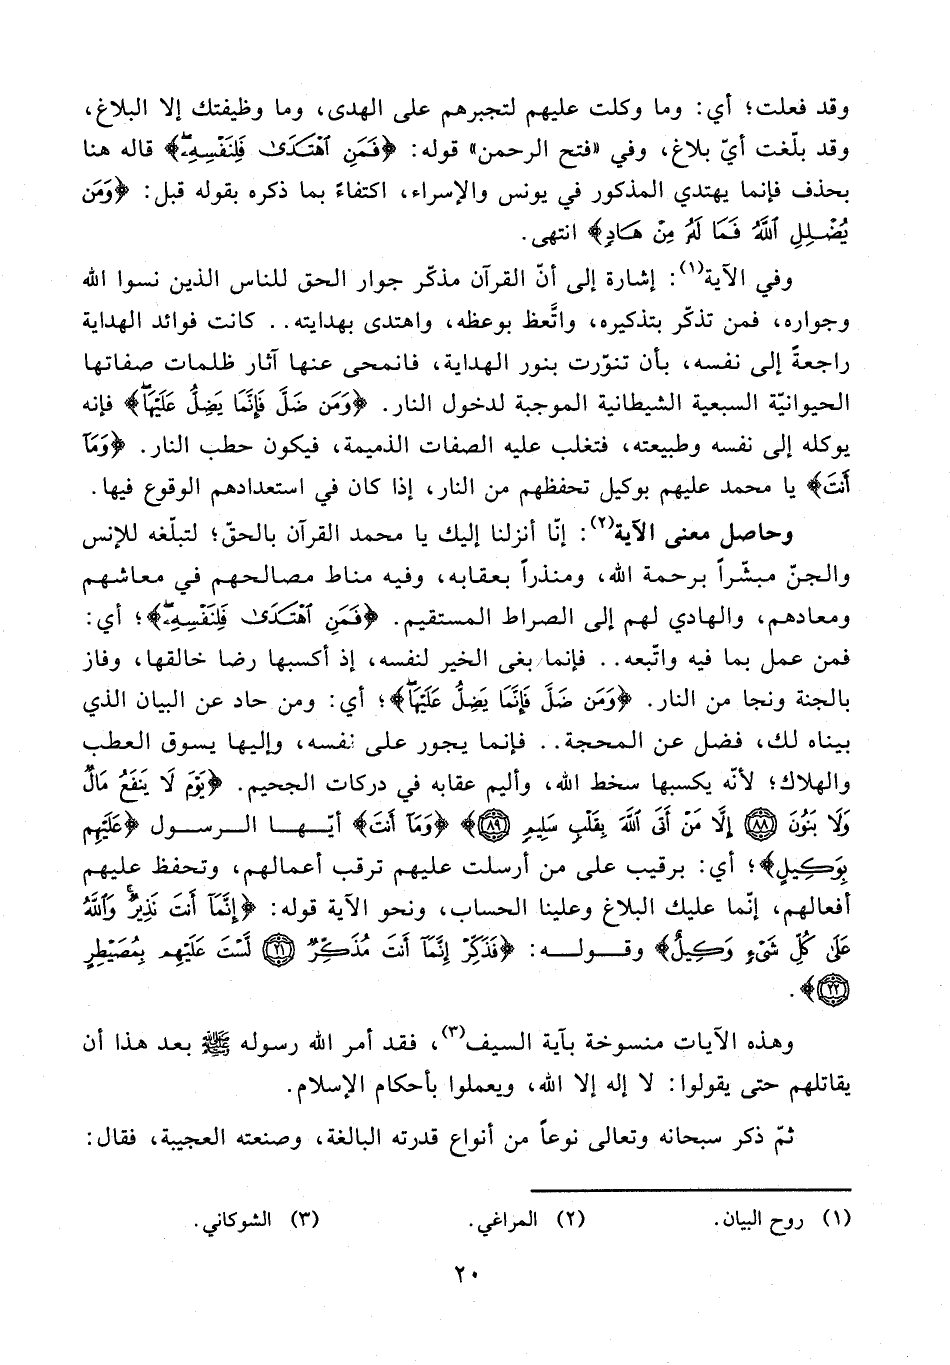 وقد فعلت؛ أي: وما وكلت عليهم لتجبرهم على الهدى، وما وظيفتك إلا البلاغ،
وقد بلّغت أيّ بلاغ، وفي «فتح الرحمن» قوله: ﴿فَمَنِ ٱهْتَدَىٰ فَلِنَفْسِهِۦۖ﴾ قاله هنا
بحذف فإنما يهتدي المذكور في يونس والإسراء، اكتفاءً بما ذكره بقوله قبل: ﴿وَمَن
يُضْلِلِ ٱللَّهُ فَمَا لَهُۥ مِنْ هَادٍ﴾ انتهى.
وفي الآية(١): إشارة إلى أنّ القرآن مذكّر جوار الحق للناس الذين نسوا الله
وجواره، فمن تذكّر بتذكيره، واتَّعظ بوعظه، واهتدى بهدايته.. كانت فوائد الهداية
راجعةً إلى نفسه، بأن تنوّرت بنور الهداية، فانمحى عنها آثار ظلمات صفاتها
الحيوانيّة السبعية الشيطانية الموجبة لدخول النار. ﴿وَمَن ضَلَّ فَإِنَّمَا يَضِلُّ عَلَيْهَاۖ﴾ فإنه
يوكله إلى نفسه وطبيعته، فتغلب عليه الصفات الذميمة، فيكون حطب النار. ﴿وَمَآ
أَنتَ﴾ يا محمد عليهم بوكيل تحفظهم من النار، إذا كان في استعدادهم الوقوع فيها.
وحاصل معنى الآية(٢): إنّا أنزلنا إليك يا محمد القرآن بالحقّ؛ لتبلّغه للإنس
والجنّ مبشّراً برحمة الله، ومنذراً بعقابه، وفيه مناط مصالحهم في معاشهم
ومعادهم، والهادي لهم إلى الصراط المستقيم. ﴿فَمَنِ ٱهْتَدَىٰ فَلِنَفْسِهِۦۖ﴾؛ أي:
فمن عمل بما فيه واتّبعه.. فإنما بغى الخير لنفسه، إذ أكسبها رضا خالقها، وفاز
بالجنة ونجا من النار. ﴿وَمَن ضَلَّ فَإِنَّمَا يَضِلُّ عَلَيْهَاۖ﴾؛ أي: ومن حاد عن البيان الذي
بيناه لك، فضل عن المحجة.. فإنما يجور على نفسه، وإليها يسوق العطب
والهلاك؛ لأنّه يكسبها سخط الله، وأليم عقابه في دركات الجحيم. ﴿يَوْمَ لَا يَنفَعُ مَالٌ
وَلَا بَنُونَ ۝٨٨ إِلَّا مَنْ أَتَى ٱللَّهَ بِقَلْبٍ سَلِيمٍ ۝٨٩﴾ ﴿وَمَآ أَنتَ﴾ أيّها الرسول ﴿عَلَيْهِم
بِوَكِيلٍ﴾؛ أي: برقيب على من أرسلت عليهم ترقب أعمالهم، وتحفظ عليهم
أفعالهم، إنّما عليك البلاغ وعلينا الحساب، ونحو الآية قوله: ﴿إِنَّمَآ أَنتَ نَذِيرٌۚ وَٱللَّهُ
عَلَىٰ كُلِّ شَىْءٍ وَكِيلٌ﴾ وقوله: ﴿فَذَكِّرْ إِنَّمَآ أَنتَ مُذَكِّرٌ ۝٢١ لَّسْتَ عَلَيْهِم بِمُصَيْطِرٍ
۝٢٢﴾.
وهذه الآيات منسوخة بآية السيف(٣)، فقد أمر الله رسوله ﷺ بعد هذا أن
يقاتلهم حتى يقولوا: لا إله إلا الله، ويعملوا بأحكام الإسلام.
ثمّ ذكر سبحانه وتعالى نوعاً من أنواع قدرته البالغة، وصنعته العجيبة، فقال:
(١) روح البيان. (٢) المراغي. (٣) الشوكاني.
٢٠